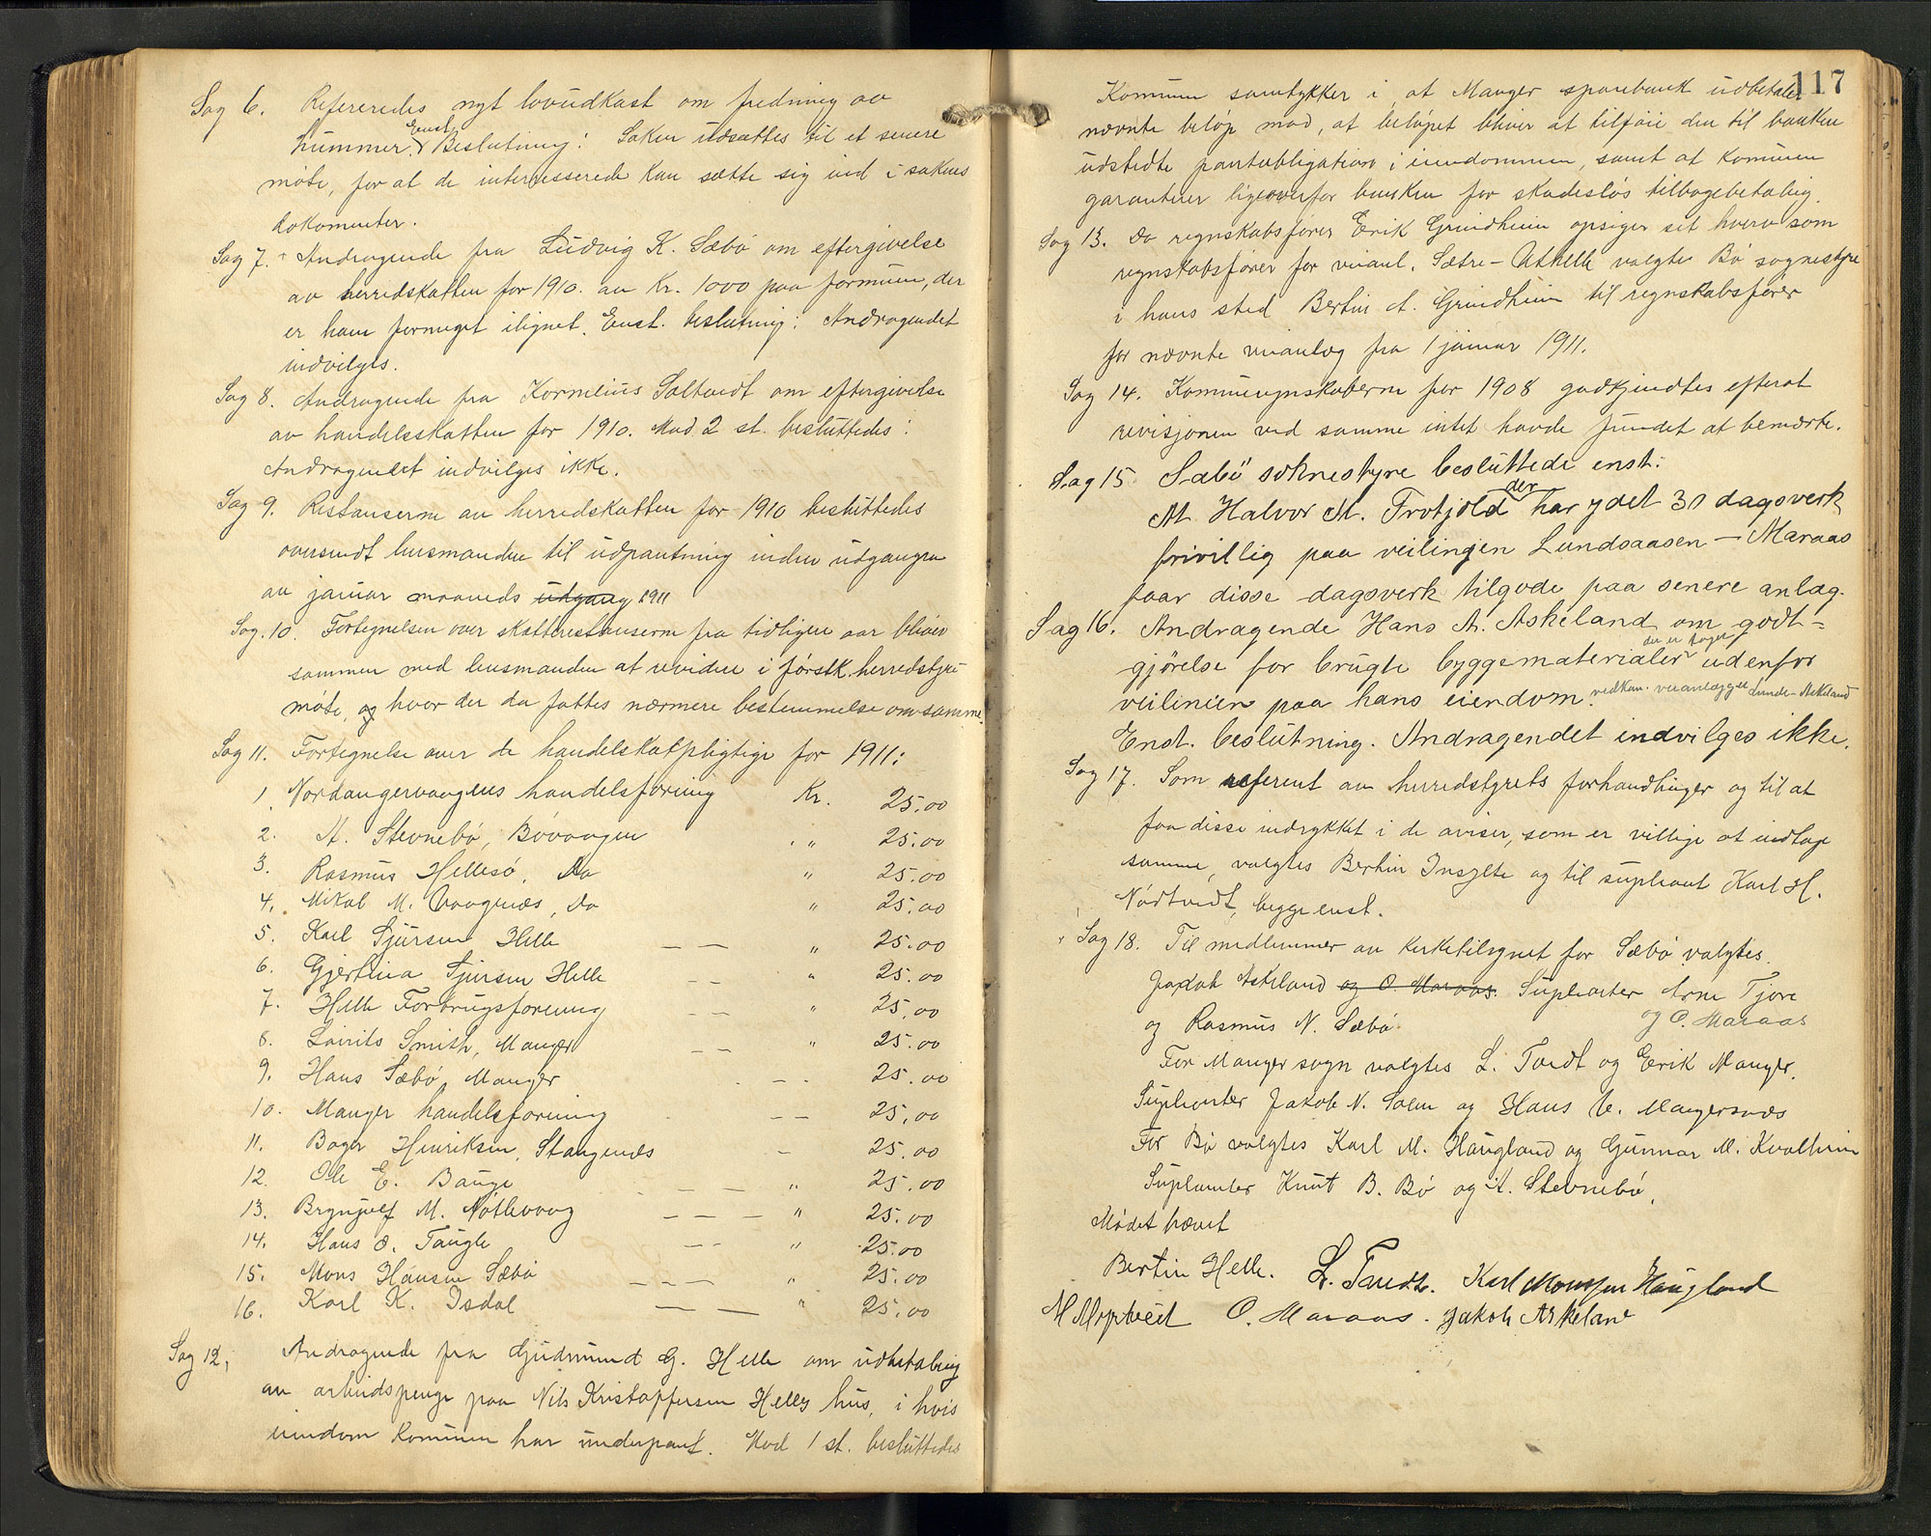 Sag 6. Refereredes nyt lovudkast om fredning av
Enst.
hummer. Beslutning: Saken utsættes til et senere
møte, for at de interesserede kan sætte sig ind i sakens
dokumenter.
Sag 7. Andragende fra Ludvig K. Sæbø om eftergivelse
av herredskatten for 1910 av Kr. 1000 paa formuen, der
er ham formeget ilignet. Enst. beslutning: Andragendet
indvilges.
Sag 8. Andragende fra Kornelius Soltvedt om eftergivelse
av handelsskatten for 1910. Mod 2 st. besluttedes:
Andragendet indvilges ikke.
Sag 9. Restanserne av herredskatten for 1910 besluttedes
oversendt lensmanden til udpantning inden udgangen
av januar maaneds udgang 1911
Sag. 10. Fortegnelsen over skatterestanserne fra tidligere aar bliver
sammen med lensmanden at revidere i førstk. herredstyre-
møte, og hvor der da fattes nærmere bestemmelse om samme.
Sag 11. Fortegnelse over de handelskatpligtige for 1911:
1. Nordangervaagens handelsforening Kr. 25.00
2. A. Stevnebø, Bøvaagen " 25.00
3. Rasmus Hellesø, Do " 25.00
4. Mikal M. Vaagenes, Do " 25.00
5. Karl Sjursen Helle — — " 25.00
6. Gjertina Sjursen Helle — — " 25.00
7. Helle Forbrugsforening — — " 25.00
8. Lauritz Smith, Manger — — " 25.00
9. Hans Sæbø, Manger — — 25.00
10. Manger handelsforening — — 25.00
11. Roger Henriksen, Stangenes — 25.00
12. Ole E. Bauge — — " 25.00
13. Brynjulf M. Nøtlevaag — — — " 25.00
14. Hans O. Taugle — — " 25.00
15. Mons Hansen Sæbø — — — " 25.00
16. Karl K. Isdal — — " 25.00
Sag 12. Andragende fra Gudmund G. Helle om udbetaling
av arbeidspenge paa Nils Kristoffersen Helles hus, i hvis
eiendom komunen har underpant. Mod 1 st. besluttedes
117
Komunen samtykker i, at Manger sparebank udbetaler
nævnte beløp mod, at beløpet bliver at tilføie den til banken
udstedte pantobligation i eiendommen, samt at komunen
garanterer ligeoverfor banken for skadesløs tilbagebetaling.
Sag 13. Da regnskabsfører Erik Grindheim opsiger sit hverv som
regnskabsfører for veianl. Sætre – Utkelle valgte Bø sognestyre
i hans sted Bertin A. Grindheim til regnskabsfører
for nævnte veianlæg fra 1 januar 1911.
Sag 14. Komuneregnskaberne for 1908 godkjendtes efterat
revisjonen ved samme intet havde fundet at bemærke.
Sag 15. Sæbø soknestyre besluttede enst:
der
At Halvor M. Trotjold har ydet 30 dagsverk
frivillig paa veilinjen Lundsaasen – Maraas
faar disse dagsverk tilgode paa senere anlæg.
Sag 16. Andragende Hans A. Askeland om godt-
der er tager
gjørelse for brugte byggematerialer udenfor
veilinien paa hans eiendom. vedkom. veianlægget Lunde – Askeland
Enst. beslutning. Andragendet indvilges ikke.
Sag 17. Som referent av herredstyrets forhandlinger og til at
faa disse indrykket i de aviser, som er villige at indtage
samme, valgtes Bertin Insylte og til supleant Karl H.
Nødtvedt, begge enst.
Sag 18. Til medlemmer av kirketilsynet for Sæbø valgtes
Jakob Askeland og O. Maraas. Supleanter Arne Tjore
og Rasmus N. Sæbø. og O. Maraas
For Manger sogn valgtes L. Tvedt og Erik Manger.
Supleanter Jakob N. Solem og Hans M. Mangersnes
For Bø valgtes Karl M. Haugland og Gunnar M. Kvalheim
Supleanter Knut B. Bø og A. Stevnebø.
Mødet hævet
Bertin Helle. L. Tvedt. Karl Monssen Haugland
O. Maraas. Jakob Askeland